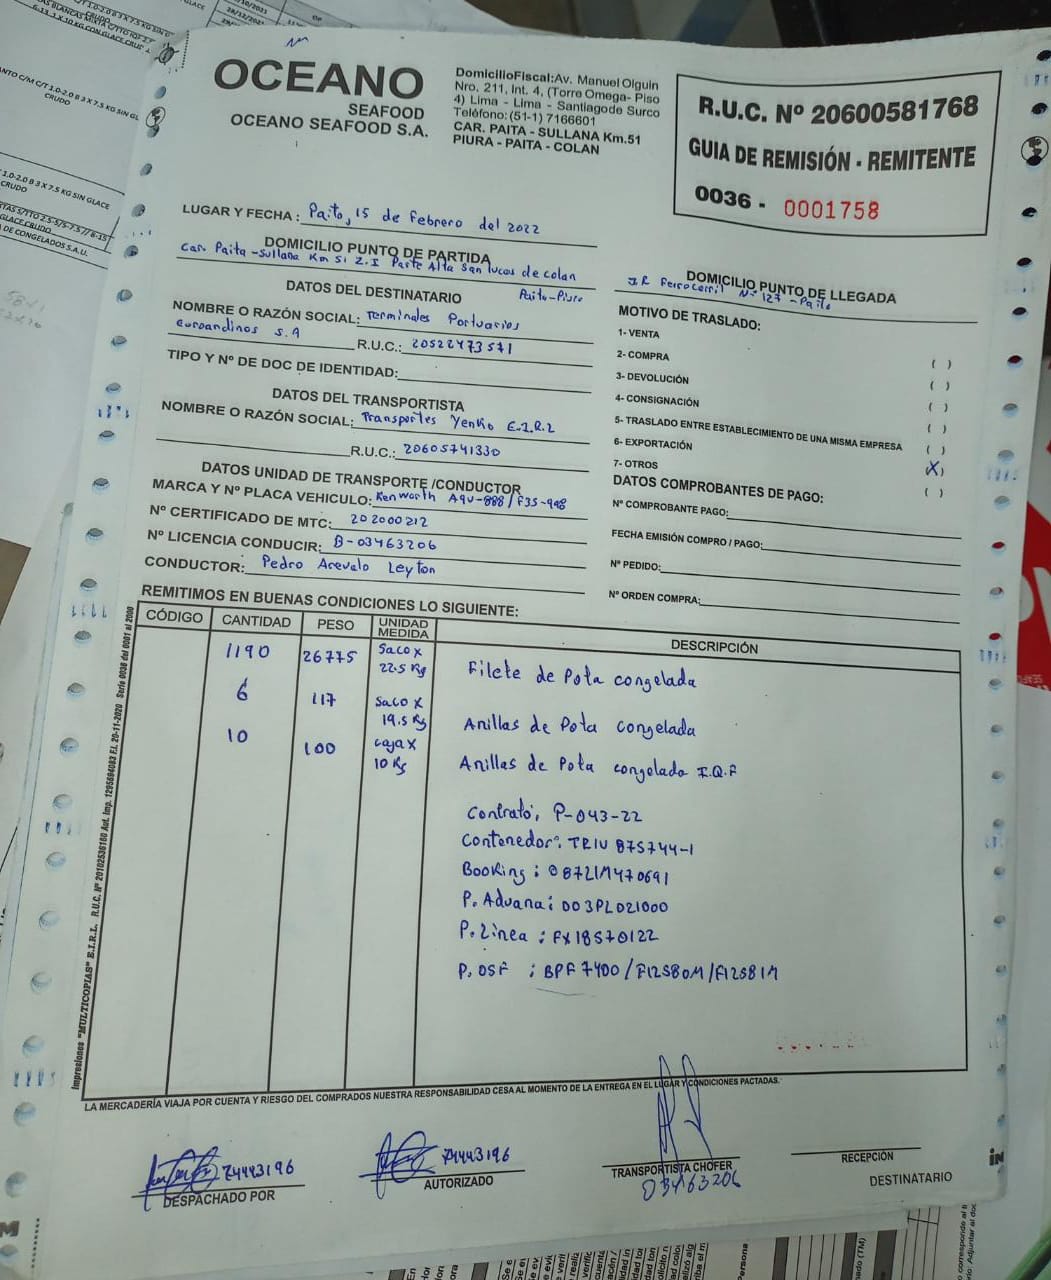 OCEANO
SEAFOOD
OCEANO SEAFOOD S.A.
DomicilioFiscal:Av. Manuel Olguin
Nro. 211, Int. 4, (Torre Omega- Piso
4) Lima - Lima - Santiagode Surco
Teléfono:(51-1) 7166601
CAR. PAITA - SULLANA Km.51
PIURA - PAITA - COLAN
R.U.C. Nº 20600581768
GUIA DE REMISIÓN - REMITENTE
0036 - 0001758
LUGAR Y FECHA : Paita, 15 de febrero del 2022
DOMICILIO PUNTO DE PARTIDA
Car. Paita - Sullana Km 51 Z.I Parte Alta San lucas de colan
Paita-Piura
DOMICILIO PUNTO DE LLEGADA
JR Ferrocarril Nº 127 - Paita
DATOS DEL DESTINATARIO
NOMBRE O RAZÓN SOCIAL: Terminales Portuarios
Euroandinos S.A R.U.C.: 20522473571
TIPO Y Nº DE DOC DE IDENTIDAD:
DATOS DEL TRANSPORTISTA
NOMBRE O RAZÓN SOCIAL: Transportes Yenko E.I.R.L
R.U.C.: 20605741330
DATOS UNIDAD DE TRANSPORTE /CONDUCTOR
MARCA Y Nº PLACA VEHICULO: Kenworth AQU-888/F3S-998
Nº CERTIFICADO DE MTC: 202000212
Nº LICENCIA CONDUCIR: B-03463206
CONDUCTOR: Pedro Arevalo Leyton
MOTIVO DE TRASLADO:
1- VENTA ( )
2- COMPRA ( )
3- DEVOLUCIÓN ( )
4- CONSIGNACIÓN ( )
5- TRASLADO ENTRE ESTABLECIMIENTO DE UNA MISMA EMPRESA ( )
6- EXPORTACIÓN (X)
7- OTROS ( )
DATOS COMPROBANTES DE PAGO:
Nº COMPROBANTE PAGO:
FECHA EMISIÓN COMPRO / PAGO:
Nº PEDIDO:
Nº ORDEN COMPRA:
REMITIMOS EN BUENAS CONDICIONES LO SIGUIENTE:
CÓDIGO CANTIDAD PESO UNIDAD MEDIDA DESCRIPCIÓN
1190 26775 Saco x 22.5 Kg Filete de Pota congelada
6 117 Saco x 19.5 Kg Anillas de Pota congelada
10 100 caja x 10 Kg Anillas de Pota congelada I.Q.F
Contrato: P-043-22
Contenedor: TRIU 875744-1
Booking: 0872IM470691
P. Aduana: 003PLD21000
P. Linea : FX18570122
P. OSF : BPF7400/F12580M/F12581M
Impresiones "MULTICOPIAS" E.I.R.L. R.U.C. Nº 20102536160 Aut. Imp. 1295694083 F.I. 20-11-2020 Serie 0036 del 0001 al 2000
LA MERCADERÍA VIAJA POR CUENTA Y RIESGO DEL COMPRADOS NUESTRA RESPONSABILIDAD CESA AL MOMENTO DE LA ENTREGA EN EL LUGAR Y CONDICIONES PACTADAS.
74443196
DESPACHADO POR
74443196
AUTORIZADO
TRANSPORTISTA CHOFER
03463206
RECEPCIÓN
DESTINATARIO